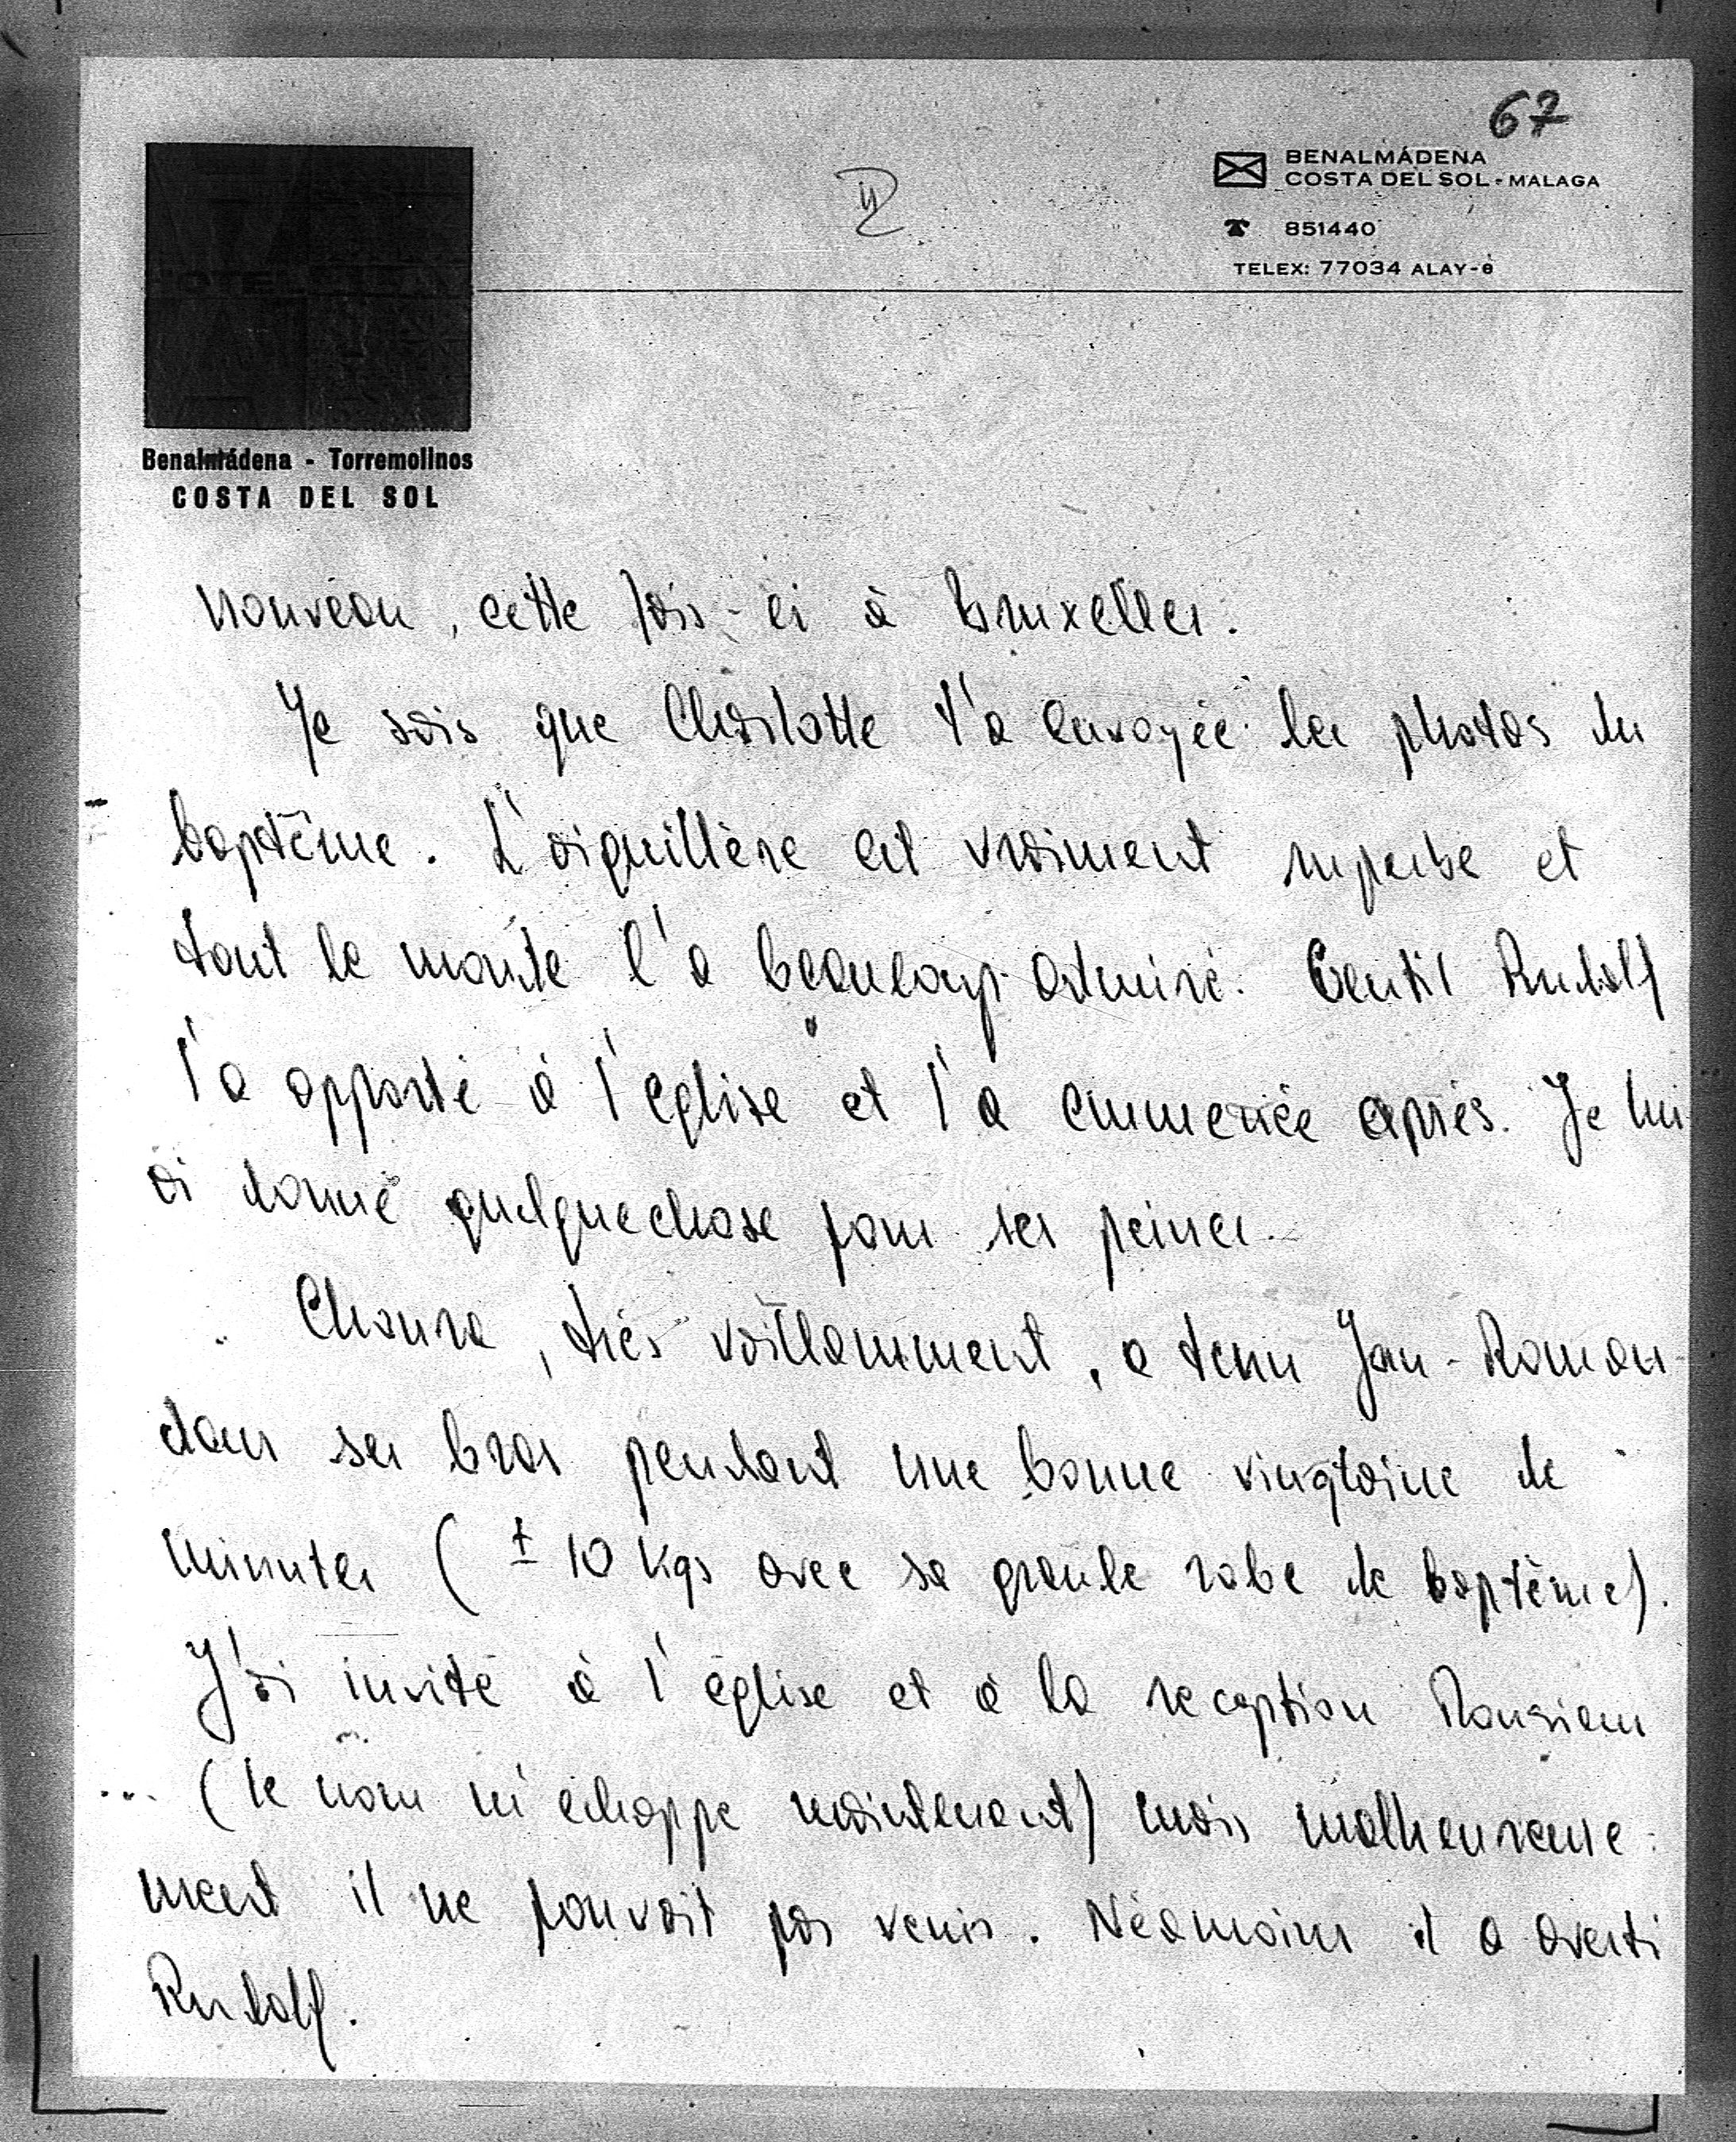 67
BENALMÁDENA
COSTA DEL SOL - MALAGA
851440
TELEX: 77034 ALAY-e
II
HOTEL
Benalmádena - Torremolinos
COSTA DEL SOL
nouveau, cette fois-ci à Bruxelles.
Je sais que Charlotte t'a envoyée les photos du
baptême. L'aiguillère est vraiment superbe et
tout le monde l'a beaucoup admiré. Gentil Rudolf
l'a apporté à l'église et l'a emmenée après. Je lui
ai donné quelquechose pour ses peines.
, très vaillamment, a tenu Jan-Roman
dans ses bras pendant une bonne vingtaine de
minutes (± 10 kgs avec sa grande robe de baptême).
J'ai invité à l'église et à la reception Monsieur
... (le nom m'échappe maintenant) mais malheureuse-
ment il ne pouvait pas venir. Néamoins il a averti
Rudolf.